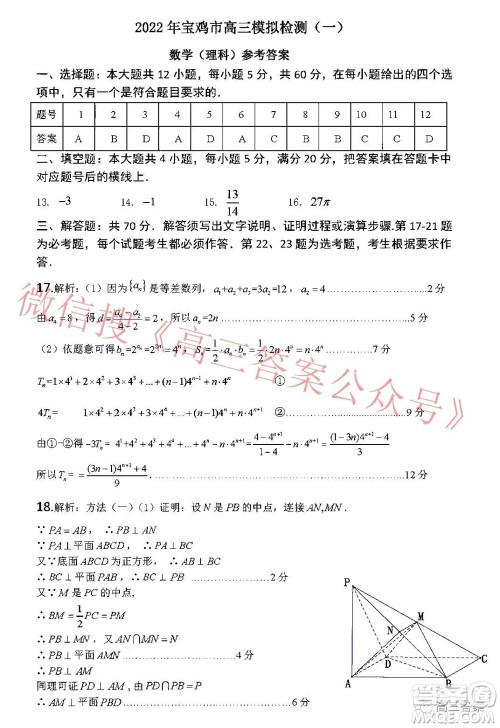 2022 年宝鸡市高三模拟检测（一）
数学（理科）参考答案
一、选择题：本大题共 12 小题，每小题 5 分，共 60 分，在每小题给出的四个选
项中，只有一个是符合合题目要求的．
题号 1 2 3 4 5 6 7 8 9 10 11 12
答案 A B D A C D A B D C A D
二、填空题：本大题共 4 小题，每小题 5 分，满分 20 分，把答案在答题卡中
对应题号后的横线上．
13. −3 14. −1 15. 13/14 16. 27π
三、解答题：共 70 分．解答须写出文字说明、证明过程或演算步骤．第 17-21 题
为必考题，每个试题考生都必须作答．第 22、23 题为选考题，考生根据要求作答．
17.解析：（1）因为{aₙ}是等差数列，a₁+a₂+a₃=3a₂=12，a₂=4 …2 分
由 a₄=8，得 d=(a₄−a₂)/(4−2)=2，所以 aₙ=2n …5 分
（2）依题意可得 bₙ=2^{aₙ}=2^{2n}=4ⁿ, ＝n·4ⁿ …7 分
Tₙ=1×4¹+2×4²+3×4³+...+(n−1)4ⁿ⁻¹+n·4ⁿ ①
4Tₙ= 1×4²+2×4³+3×4⁴+...+(n−1)4ⁿ+n·4ⁿ⁺¹ ②
由①−②得 −3Tₙ= 4¹+4²+4³+...+4ⁿ−n·4ⁿ⁺¹=(4−4ⁿ⁺¹)/(1−4)−n·4ⁿ⁺¹=((1−3n)4ⁿ⁺¹−4)/3
所以 Tₙ=((3n−1)4ⁿ⁺¹+4)/9 …12 分
18.解析：方法（一）（1）证明：设 N 是 PB 的中点，连接 AN,MN．
∵ PA=AB，∴ PB⊥AN
∵ PA⊥平面 ABCD，∴ PA⊥BC
又∵底面 ABCD 为正方形，∴ BC⊥AB
∴ BC⊥平面 PAB，∴ BC⊥PB …2 分
又∵ M 是 PC 的中点，
∴ BM=1/2 PC=PM
∴ PB⊥MN …4 分
∴ PB⊥平面 AMN …6 分
∴ PB⊥AM
同理可证 PD⊥AM
∴ AM⊥平面 PBD …6 分
P
N
M
D
C
A
B
微信搜《高三答案公众号》
高三答案